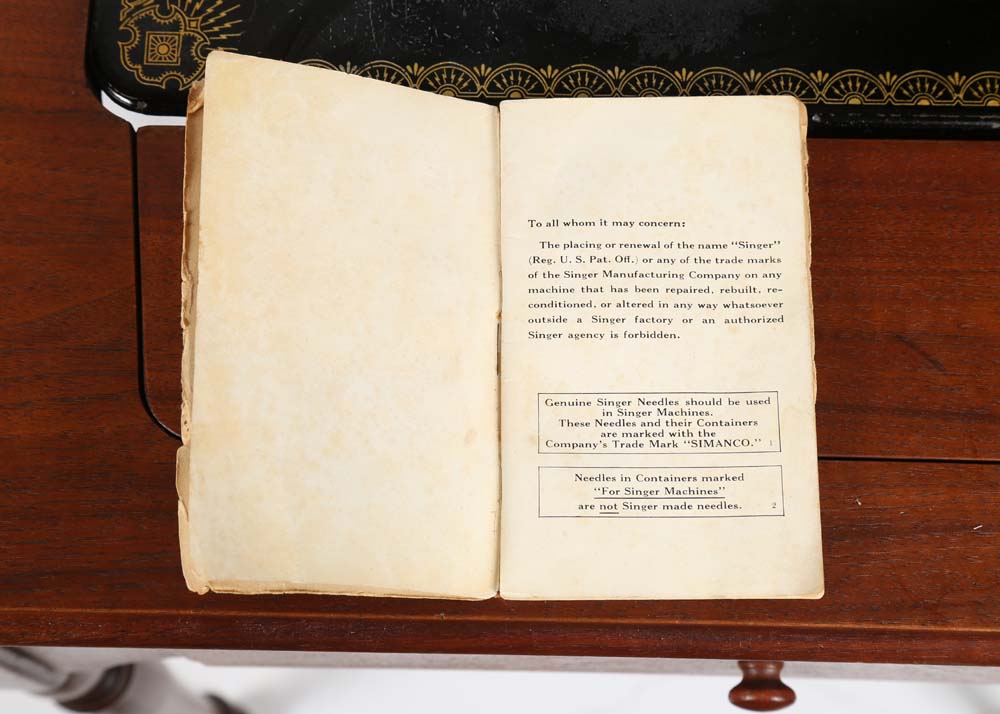 To all whom it may concern:
The placing or renewal of the name "Singer"
(Reg. U. S. Pat. Off.) or any of the trade marks
of the Singer Manufacturing Company on any
machine that has been repaired, rebuilt, re-
conditioned, or altered in any way whatsoever
outside a Singer factory or an authorized
Singer agency is forbidden.
Genuine Singer Needles should be used
in Singer Machines.
These Needles and their Containers
are marked with the
Company's Trade Mark "SIMANCO." 1
Needles in Containers marked
"For Singer Machines"
are not Singer made needles. 2